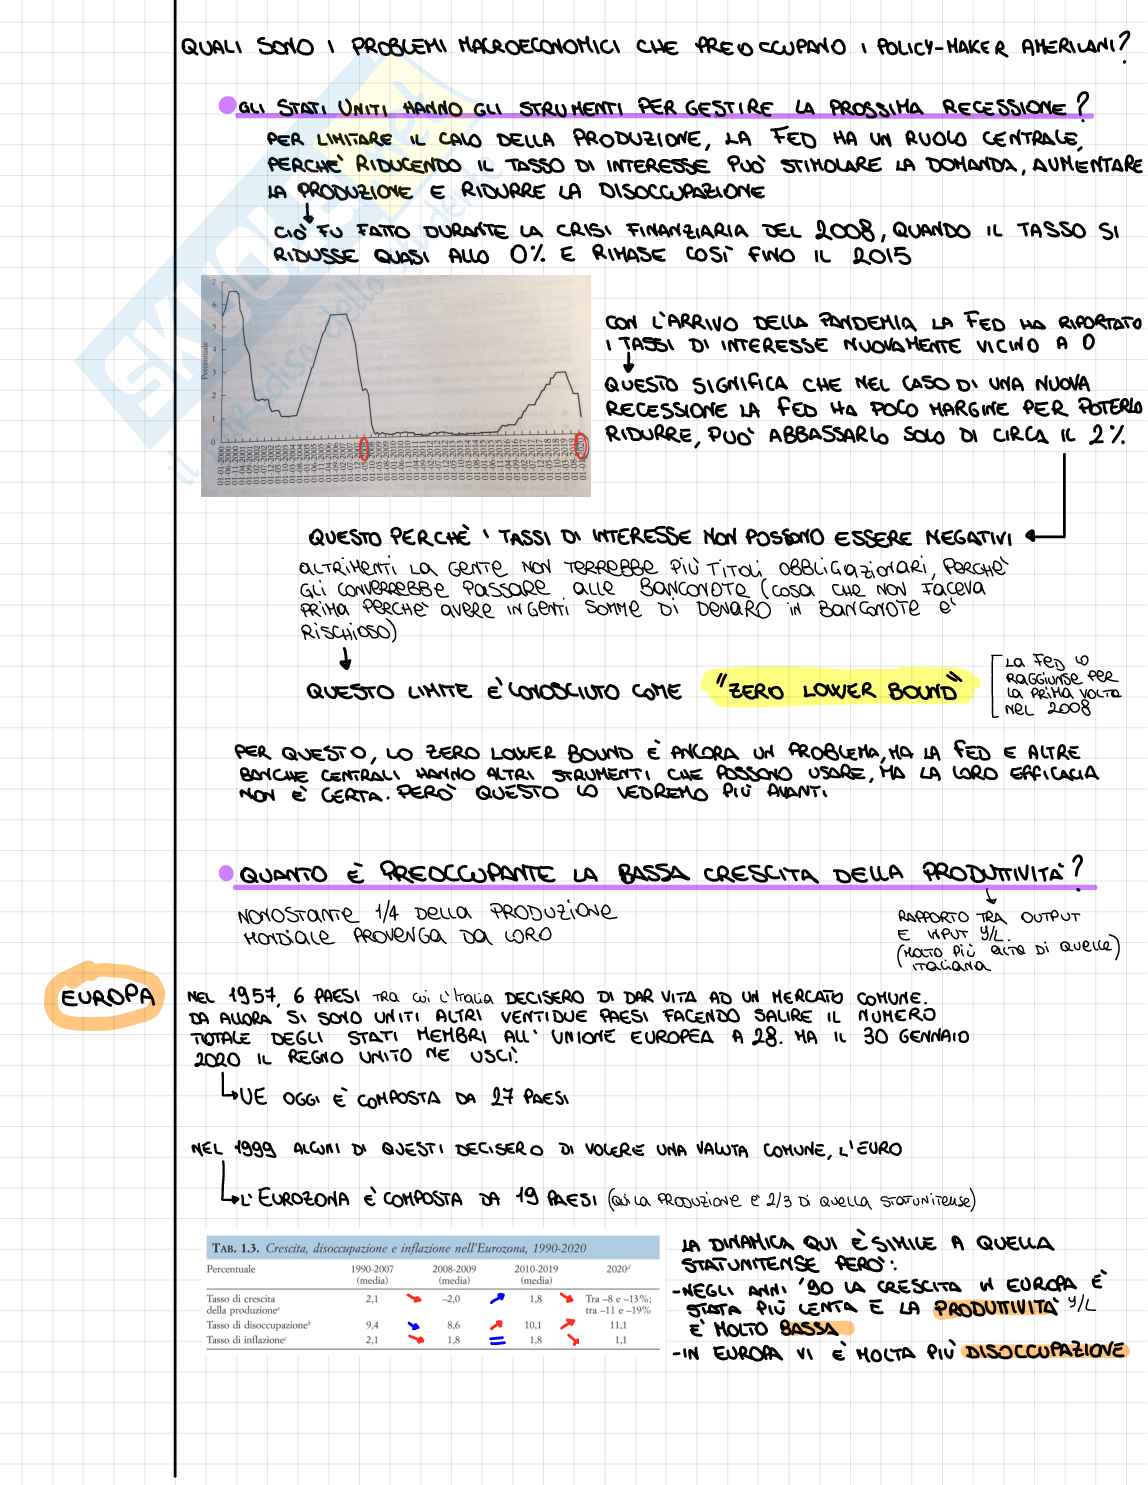 QUALI SONO I PROBLEMI MACROECONOMICI CHE PREOCCUPANO I POLICY-MAKER AMERICANI?
GLI STATI UNITI HANNO GLI STRUMENTI PER GESTIRE LA PROSSIMA RECESSIONE?
PER LIMITARE IL CALO DELLA PRODUZIONE, LA FED HA UN RUOLO CENTRALE,
PERCHE' RIDUCENDO IL TASSO DI INTERESSE PUÒ STIMOLARE LA DOMANDA, AUMENTARE
LA PRODUZIONE E RIDURRE LA DISOCCUPAZIONE
CIÒ FU FATTO DURANTE LA CRISI FINANZIARIA DEL 2008, QUANDO IL TASSO SI
RIDUSSE QUASI ALLO 0% E RIMASE COSÌ FINO IL 2015
Percentuale
CON L'ARRIVO DELLA PANDEMIA LA FED HA RIPORTATO
I TASSI DI INTERESSE NUOVAMENTE VICINO A 0
QUESTO SIGNIFICA CHE NEL CASO DI UNA NUOVA
RECESSIONE LA FED HA POCO MARGINE PER POTERLO
RIDURRE, PUÒ ABBASSARLO SOLO DI CIRCA IL 2%
QUESTO PERCHÈ I TASSI DI INTERESSE NON POSSONO ESSERE NEGATIVI
ALTRIMENTI LA GENTE NON TERREBBE PIÙ TITOLI OBBLIGAZIONARI, PERCHÈ
GLI CONVERREBBE PASSARE ALLE BANCONOTE (COSA CHE NON FACEVA
PRIMA PERCHÈ AVERE INGENTI SOMME DI DENARO IN BANCONOTE E'
RISCHIOSO)
QUESTO LIMITE E' CONOSCIUTO COME "ZERO LOWER BOUND"
LA FED LO
RAGGIUNSE PER
LA PRIMA VOLTA
NEL 2008
PER QUESTO, LO ZERO LOWER BOUND È ANCORA UN PROBLEMA, MA LA FED E ALTRE
BANCHE CENTRALI HANNO ALTRI STRUMENTI CHE POSSONO USARE, MA LA LORO EFFICACIA
NON È CERTA. PERÒ QUESTO LO VEDREMO PIÙ AVANTI
QUANTO È PREOCCUPANTE LA BASSA CRESCITA DELLA PRODUTTIVITÀ?
NONOSTANTE 1/4 DELLA PRODUZIONE
MONDIALE PROVENGA DA LORO
RAPPORTO TRA OUTPUT
E INPUT Y/L.
(MOLTO PIÙ ALTA DI QUELLA)
ITALIANA
EUROPA
NEL 1957, 6 PAESI TRA CUI L'ITALIA DECISERO DI DAR VITA AD UN MERCATO COMUNE.
DA ALLORA SI SONO UNITI ALTRI VENTIDUE PAESI FACENDO SALIRE IL NUMERO
TOTALE DEGLI STATI MEMBRI ALL' UNIONE EUROPEA A 28. MA IL 30 GENNAIO
2020 IL REGNO UNITO NE USCÌ.
UE OGGI È COMPOSTA DA 27 PAESI
NEL 1999 ALCUNI DI QUESTI DECISERO DI VOLERE UNA VALUTA COMUNE, L'EURO
L'EUROZONA E' COMPOSTA DA 19 PAESI (QUI LA PRODUZIONE È 2/3 DI QUELLA STATUNITENSE)
TAB. 1.3. Crescita, disoccupazione e inflazione nell'Eurozona, 1990-2020
Percentuale 1990-2007 (media) 2008-2009 (media) 2010-2019 (media) 2020d
Tasso di crescita della produzionea 2,1 –2,0 1,8 Tra –8 e –13%; tra –11 e –19%
Tasso di disoccupazioneb 9,4 8,6 10,1 11,1
Tasso di inflazionec 2,1 1,8 1,8 1,1
LA DINAMICA QUI E' SIMILE A QUELLA
STATUNITENSE PERO':
-NEGLI ANNI '90 LA CRESCITA IN EUROPA E'
STATA PIÙ LENTA E LA PRODUTTIVITÀ Y/L
E' MOLTO BASSA
-IN EUROPA VI E' MOLTA PIÙ DISOCCUPAZIONE